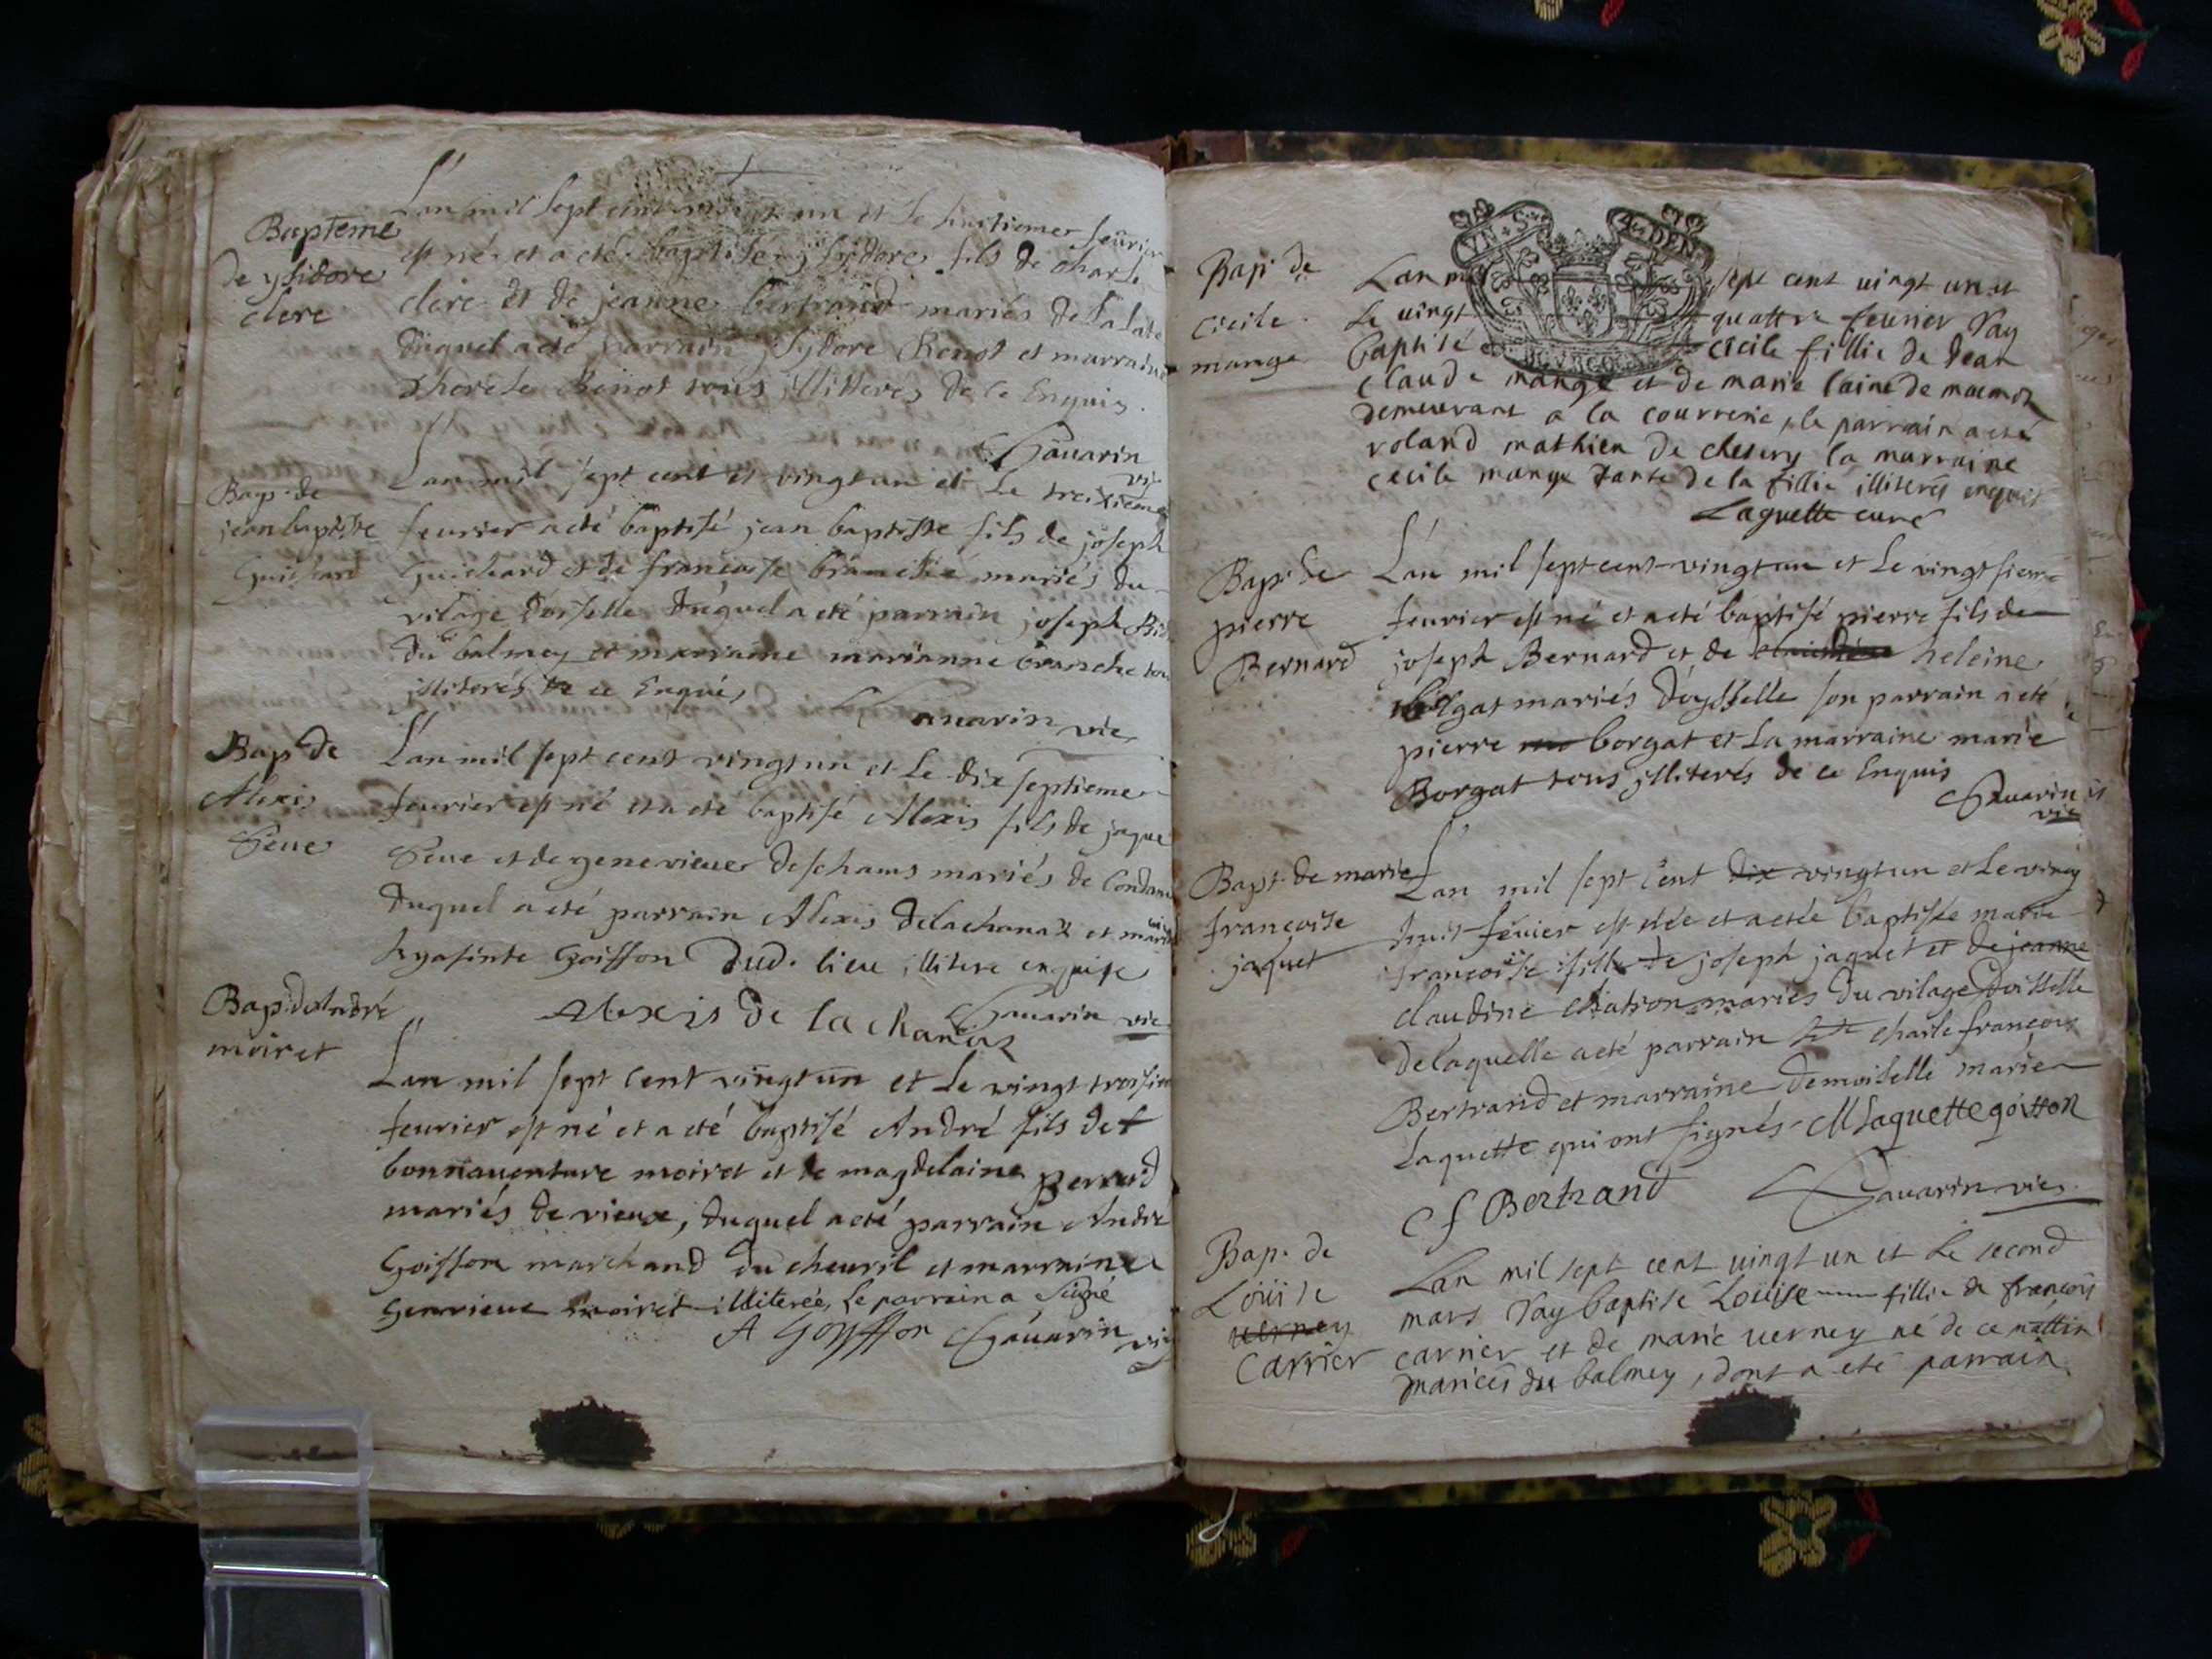 Bapteme
de ysidore
clerc
L'an mil sept cent vingt un et le huitieme feurier
est né et a eté baptisé ysydore fils de charle
clerc et de jeanne bertrand mariés de
duquel a eté parrain ysydore Benot et marraine
Benot tous illiteres de ce Enquis.
Sauarin
vic
Bap. de
jean baptiste
Guichard
L'an mil sept cent et vingt un et le treixieme
feurier a eté baptisé jean baptiste fils de joseph
Guichard et de francoise branche mariés du
vilage doisselle duquel a eté parrain joseph
du balmey et marraine marianne branche
illiterés de ce Enquis
Sauarin vic
Bap. de
Alexis
Seue
L'an mil sept cent vingt un et Le dix septieme
feurier est né et a eté baptisé Alexis fils de jaque
Seue et de genevieue deschams mariés de
duquel a eté parrain Alexis delachanaz et
hyasinte Goiffon dud. lieu illitere enquise
Alexis de la chanaz
Sauarin vic
Bap. d'André
moiret
L'an mil sept cent vingt un et Le vingt
feurier est né et a eté baptisé André fils de
bonnauenture moiret et de magdelaine Bernard
mariés de vieux, duquel a eté parrain André
Goiffon marchand du cheuril et marraine
Genevieue moiret illiterée, le parrain a signé
A Goyffon Sauarin vic
Bap. de
Cécile
mange
VN S
4 DEN
L'an mil sept cent uingt un et
le uingt quattre feurier J'ay
baptisé cécile fillie de Jean
claude mange et de marie
demeurant a la courrerie, le parrain a eté
roland mathieu de chesery la marraine
cecile mange tante de la fillie illiterés enquis
Laguette curé
Bap. de
pierre
Bernard
L'an mil sept cent vingt un et Le vingt
feurier est né et a eté baptisé pierre fils de
joseph Bernard et de heleine
borgat mariés d'oysselle son parrain a eté
pierre borgat et La marraine marie
Borgat tous illiterés de ce Enquis
Sauarin
vic
Bapt. de marie
francoise
jaquet
L'an mil sept cent dix vingt un et Le vingt
huit féurier est née et a etée baptisée marie
francoise fille de joseph jaquet et de jeanne
claudine mariés du vilage doisselle
delaquelle a eté parrain charle françois
Bertrand et marraine demoiselle marie
Laguette qui ont signés M laguette goiffon
C f Bertrand Sauarin vic.
Bap. de
Loüise
uerney
Carrier
L'an mil sept cent uingt un et le second
mars J'ay baptisé Loüise fillie de françois
carrier et de marie uerney né de ce mattin
mariés du balmey, dont a eté parrain